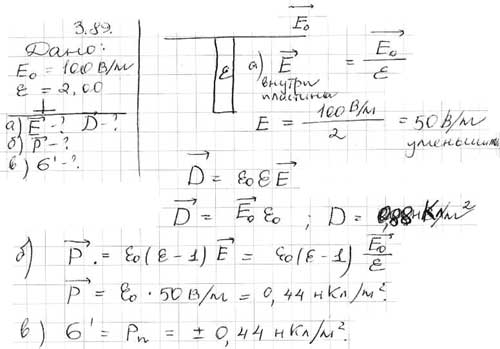 3.89.
Дано:
E₀ = 100 В/м
ε = 2,00
⊥
а) E⃗ -? D⃗ -?
б) P⃗ -?
в) σ' -?
E⃗₀
ε
а) E⃗ внутри пластины = E⃗₀/ε
E = 100 В/м / 2 = 50 В/м
уменьшит
D⃗ = ε₀εE⃗
D⃗ = E⃗₀ε₀ ; D = 0,88 нКл/м²
б) P⃗ = ε₀(ε-1)E⃗ = ε₀(ε-1) E⃗₀/ε
P⃗ = ε₀ · 50 В/м = 0,44 нКл/м².
в) σ' = Pn = ± 0,44 нКл/м².